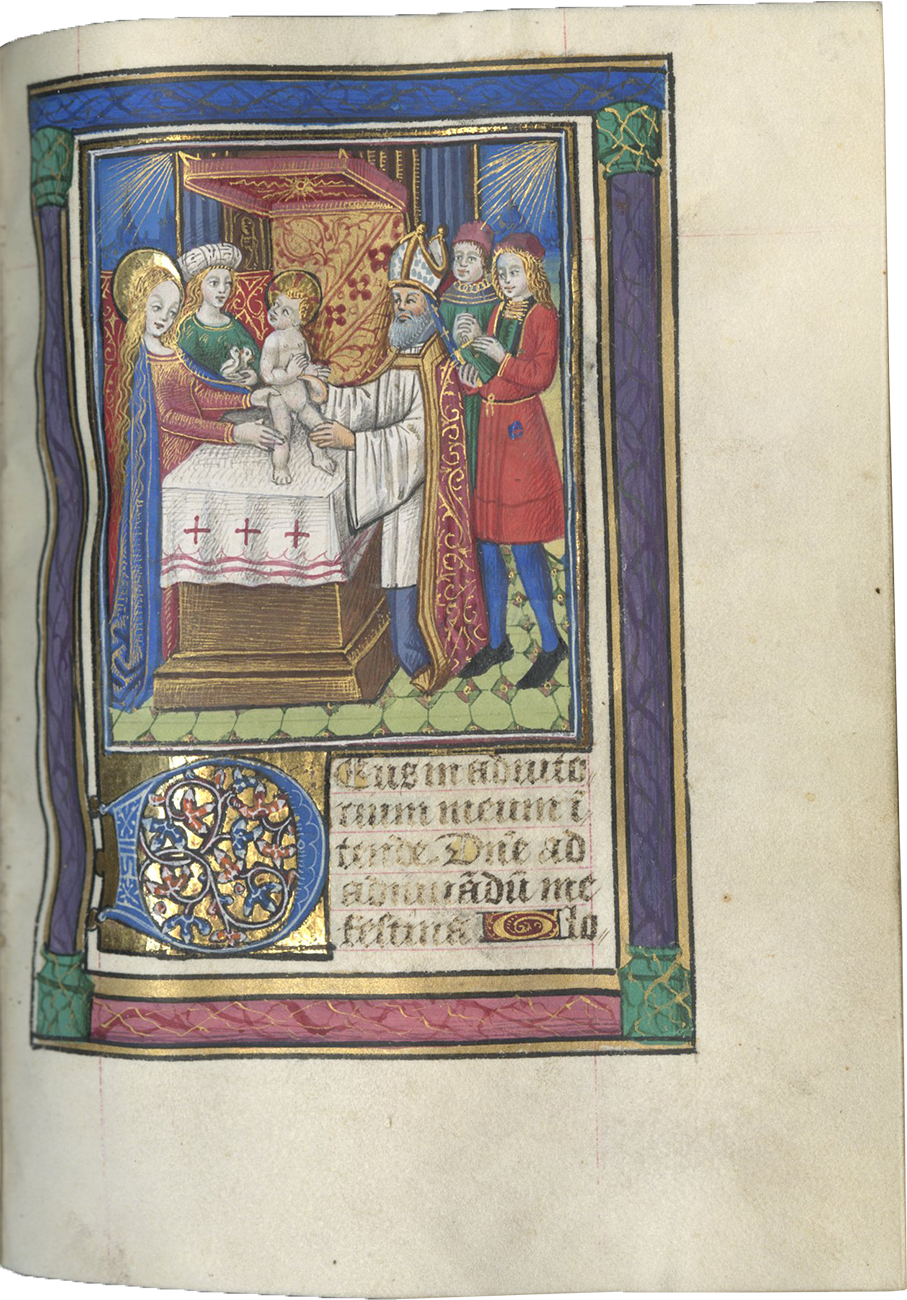 Deus in adiuto
rium meum ī
tende. Dn̄e ad
adiuuādū me
festina Glo